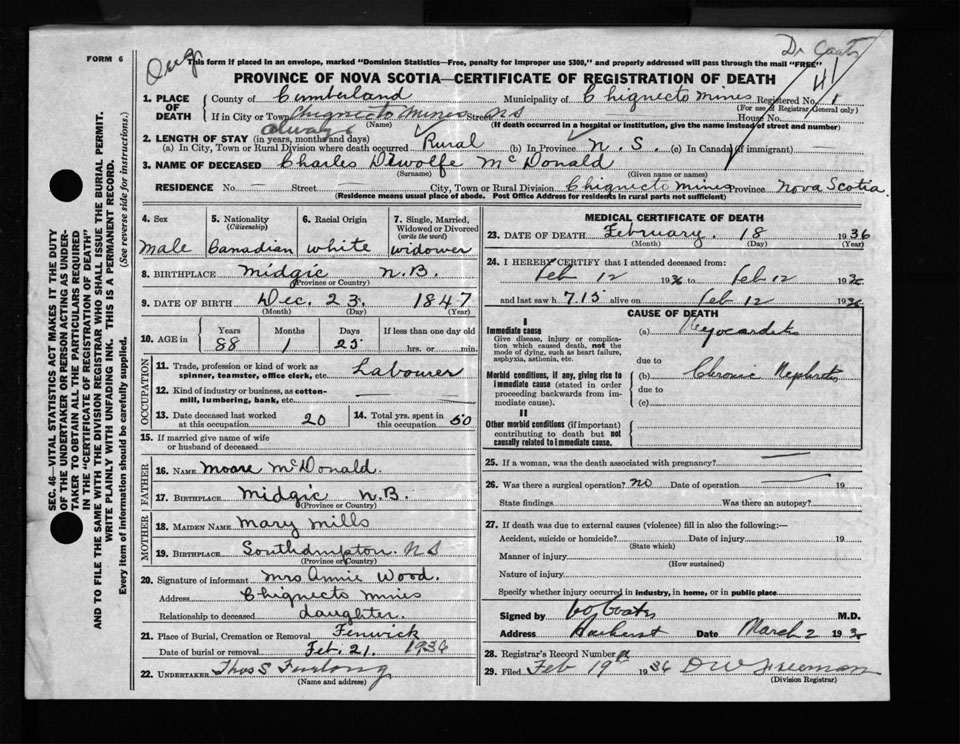 FORM 6
Orig
Dr Coates
This form if placed in an envelope, marked "Dominion Statistics—Free, penalty for improper use $300," and properly addressed will pass through the mail "FREE"
PROVINCE OF NOVA SCOTIA—CERTIFICATE OF REGISTRATION OF DEATH
41
1. PLACE OF DEATH
County of Cumberland Municipality of Chignecto Mines Registered No. 1
(For use of Registrar General only)
If in City or Town Chignecto Mines NS Street House No.
(Name) (If death occurred in a hospital or institution, give the name instead of street and number)
always
2. LENGTH OF STAY (in years, months and days)
(a) In City, Town or Rural Division where death occurred Rural (b) In Province N. S. (c) In Canada (if immigrant) —
3. NAME OF DECEASED Charles Dewolfe McDonald
(Surname) (Given name or names)
RESIDENCE No. — Street — City, Town or Rural Division Chignecto Mines Province Nova Scotia
(Residence means usual place of abode. Post Office Address for residents in rural parts not sufficient)
SEC. 46—VITAL STATISTICS ACT MAKES IT THE DUTY
OF THE UNDERTAKER OR PERSON ACTING AS UNDER-
TAKER TO OBTAIN ALL THE PARTICULARS REQUIRED
IN THE "CERTIFICATE OF REGISTRATION OF DEATH"
AND TO FILE THE SAME WITH THE DIVISION REGISTRAR WHO SHALL ISSUE THE BURIAL PERMIT.
WRITE PLAINLY WITH UNFADING INK. THIS IS A PERMANENT RECORD.
Every item of information should be carefully supplied. (See reverse side for instructions.)
4. Sex male
5. Nationality (Citizenship) Canadian
6. Racial Origin white
7. Single, Married, Widowed or Divorced (write the word) widower
8. BIRTHPLACE Midgic N.B.
(Province or Country)
9. DATE OF BIRTH Dec. 23. 1847
(Month) (Day) (Year)
10. AGE in Years 88 Months 1 Days 25 If less than one day old hrs. or min.
OCCUPATION
11. Trade, profession or kind of work as spinner, teamster, office clerk, etc. Labourer
12. Kind of industry or business, as cotton-mill, lumbering, bank, etc. —
13. Date deceased last worked at this occupation 20
14. Total yrs. spent in this occupation 50
15. If married give name of wife or husband of deceased
FATHER
16. NAME Moore McDonald.
17. BIRTHPLACE Midgic N.B.
(Province or Country)
MOTHER
18. MAIDEN NAME Mary Mills
19. BIRTHPLACE Southampton. NS
(Province or Country)
20. Signature of informant Mrs Annie Wood.
Address Chignecto Mines
Relationship to deceased daughter.
21. Place of Burial, Cremation or Removal Fenwick
Date of burial or removal Feb. 21. 1936
22. UNDERTAKER Thos S Furlong
(Name and address)
MEDICAL CERTIFICATE OF DEATH
23. DATE OF DEATH February. 18 1936
(Month) (Day) (Year)
24. I HEREBY CERTIFY that I attended deceased from:
Feb 12 1936 to Feb 12 1936
and last saw h alive on Feb 12 1936
CAUSE OF DEATH
I
Immediate cause
Give disease, injury or complication which caused death, not the mode of dying, such as heart failure, asphyxia, asthenia, etc.
(a) Myocarditis
due to
Morbid conditions, if any, giving rise to immediate cause (stated in order proceeding backwards from immediate cause).
(b) Chronic Nephritis
due to
(c)
II
Other morbid conditions (if important) contributing to death but not causally related to immediate cause.
25. If a woman, was the death associated with pregnancy? —
26. Was there a surgical operation? no Date of operation — 19
State findings Was there an autopsy?
27. If death was due to external causes (violence) fill in also the following:—
Accident, suicide or homicide? Date of injury 19
(State which)
Manner of injury
(How sustained)
Nature of injury
Specify whether injury occurred in industry, in home, or in public place
Signed by Coates M.D.
Address Amherst Date March 2 1936
28. Registrar's Record Number
29. Filed Feb 19th 1936 D W Freeman
(Division Registrar)